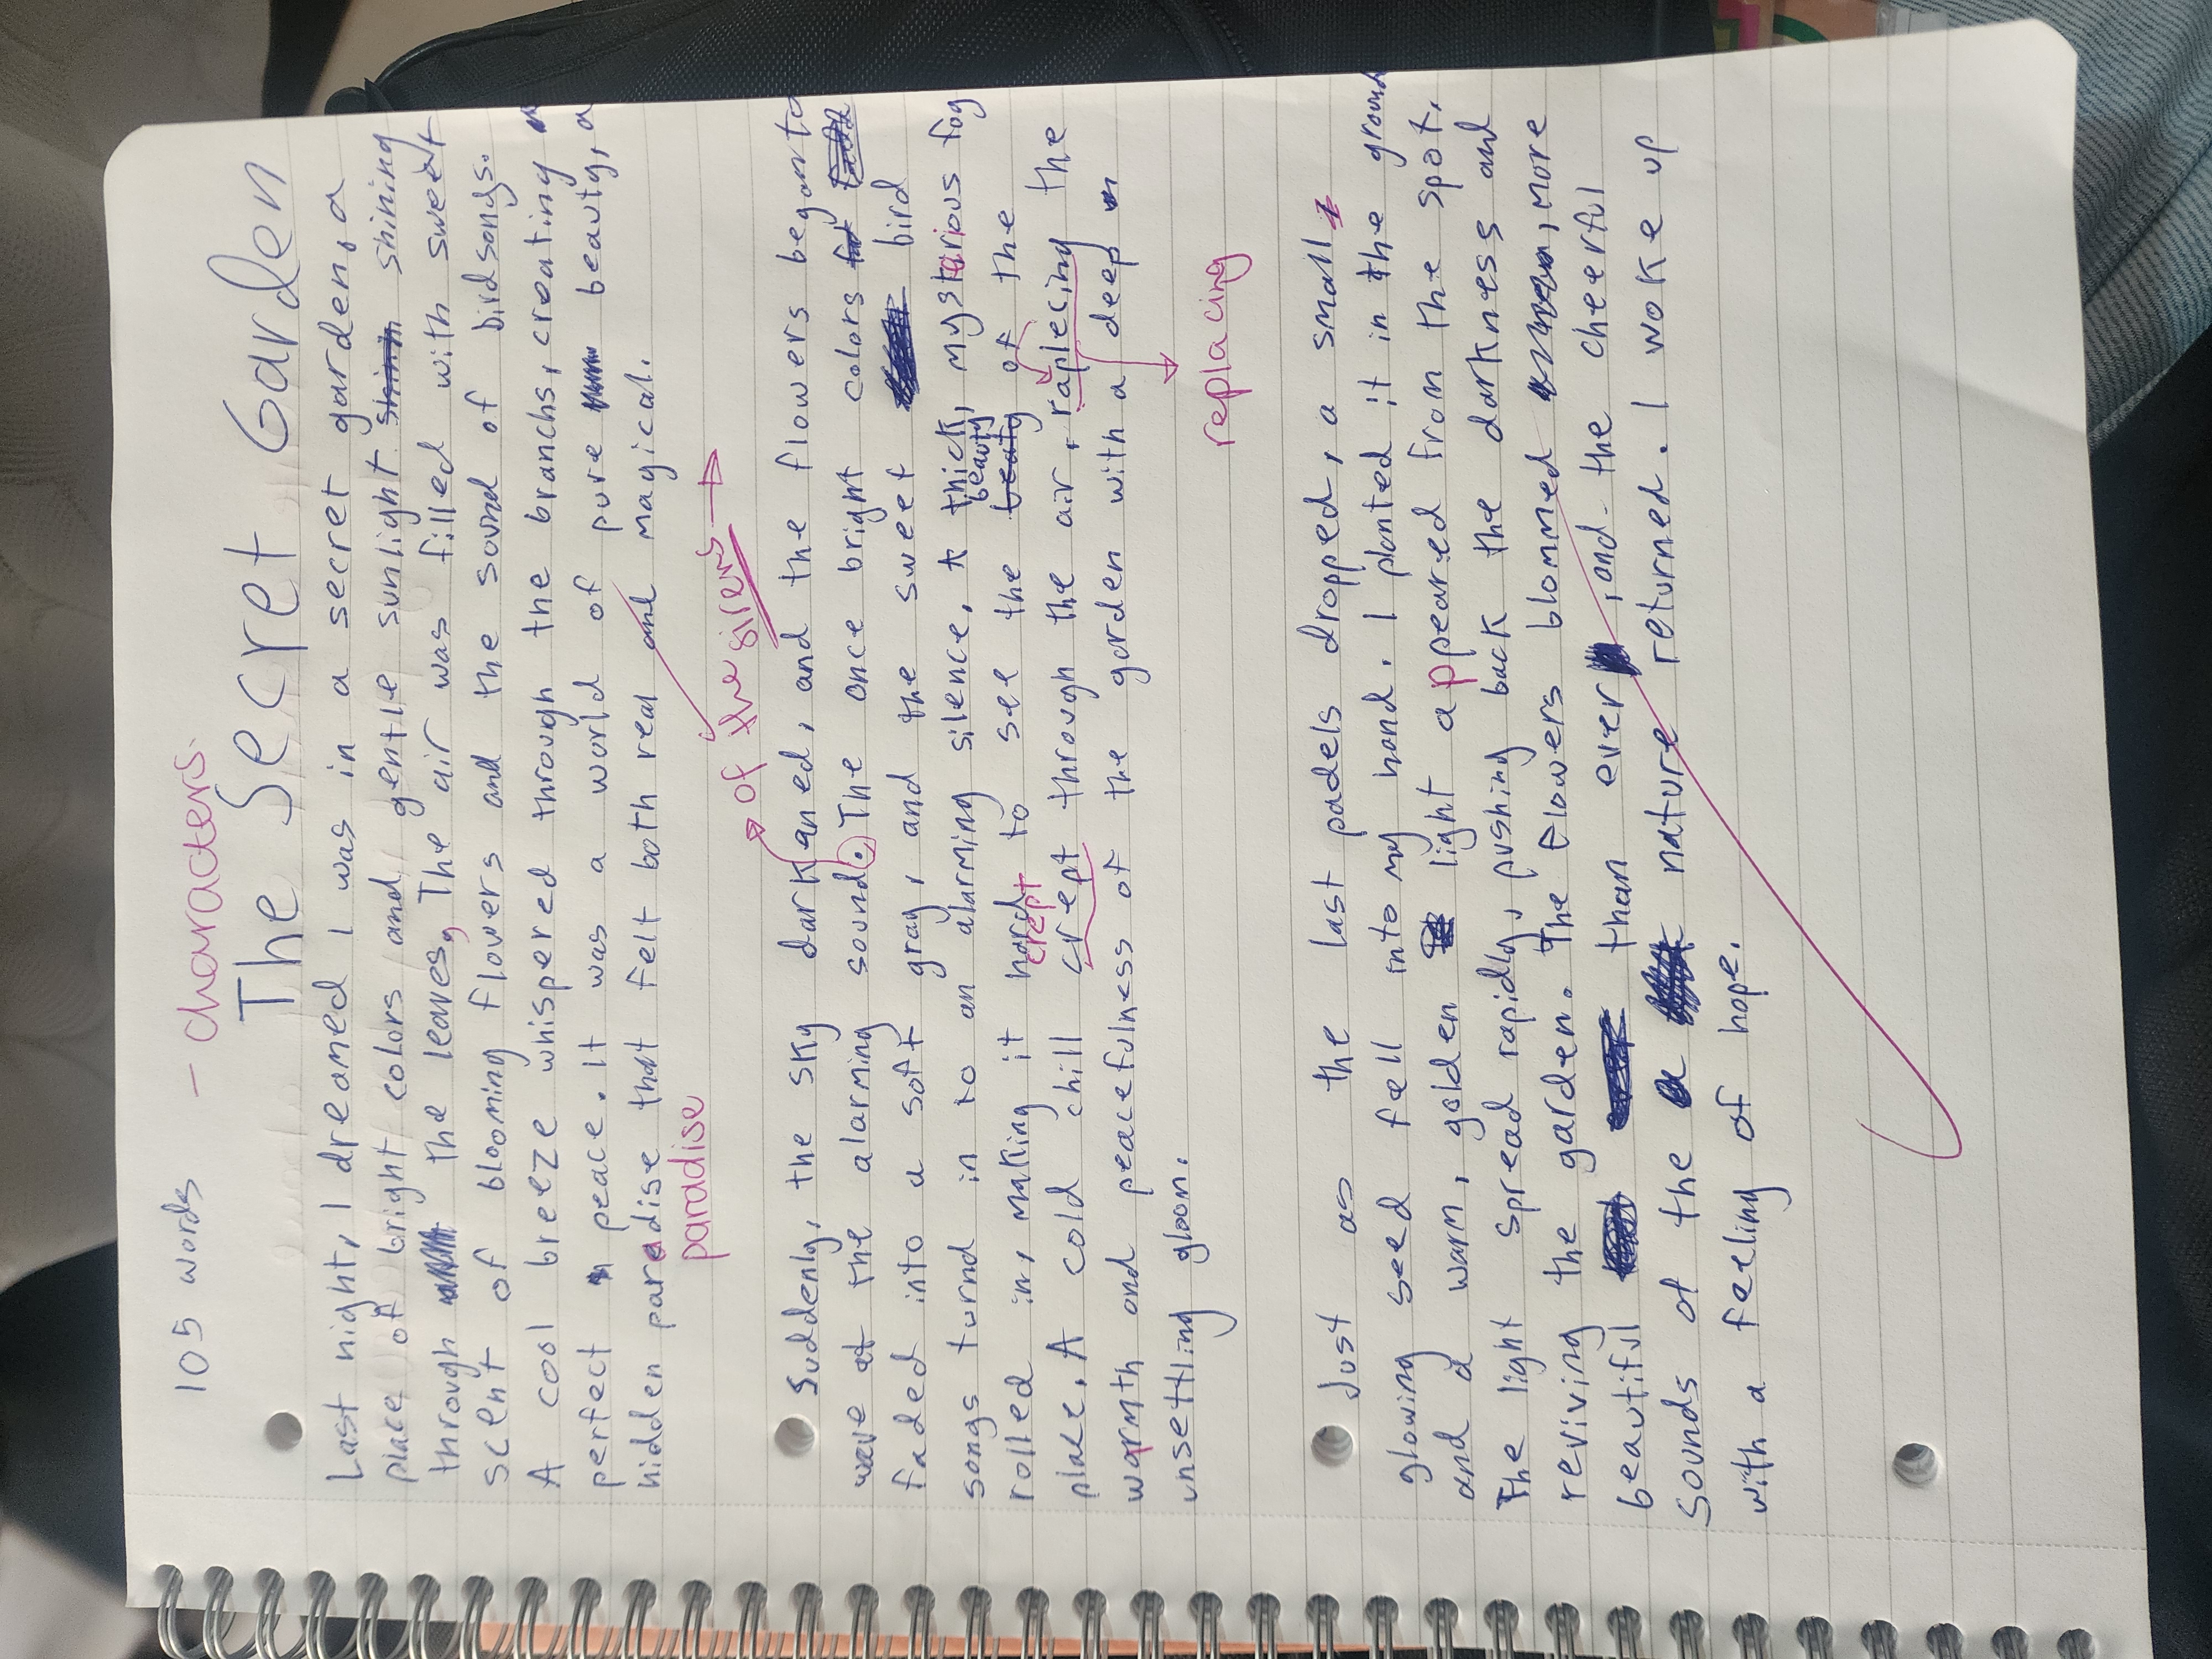 105 words - characters.
The Secret Garden
Last night, I dreamed I was in a secret garden, a
place of bright colors and gentle sunlight shining
through the leaves, The air was filled with sweet
scent of blooming flowers and the sound of birdsongs.
A cool breeze whispered through the branchs, creating
perfect peace. It was a world of pure beauty, a
hidden paradise that felt both real and magical.
paradise
of the sirens
Suddenly, the sky darkaned, and the flowers began to
the alarming sound. The once bright colors
faded into a soft gray, and the sweet bird
songs turnd in to an alarming silence, A thick, mystarious fog
rolled in, making it hard to see the beauty of the
crept
place. A cold chill crept through the air, raplecing the
warmth and peacefulness of the garden with a deep
unsettling gloon.
replacing
Just as the last padels dropped, a small
glowing seed fell into my hand. I planted it in the ground
and a warm, golden light appeared from the spot.
The light spread rapidly, pushing back the darkness and
reviving the garden. The flowers blommed, more
beautiful than ever, and the cheerful
sounds of the nature returned. I woke up
with a feeling of hope.